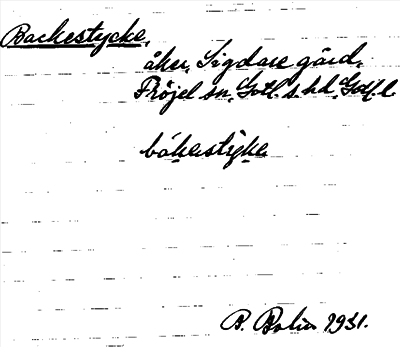 Backestycke,
åker, Sigdare gård,
Fröjel sn, Gotl. s. hd, Gotl. l.
bákestyke
B. Bolin 1931.